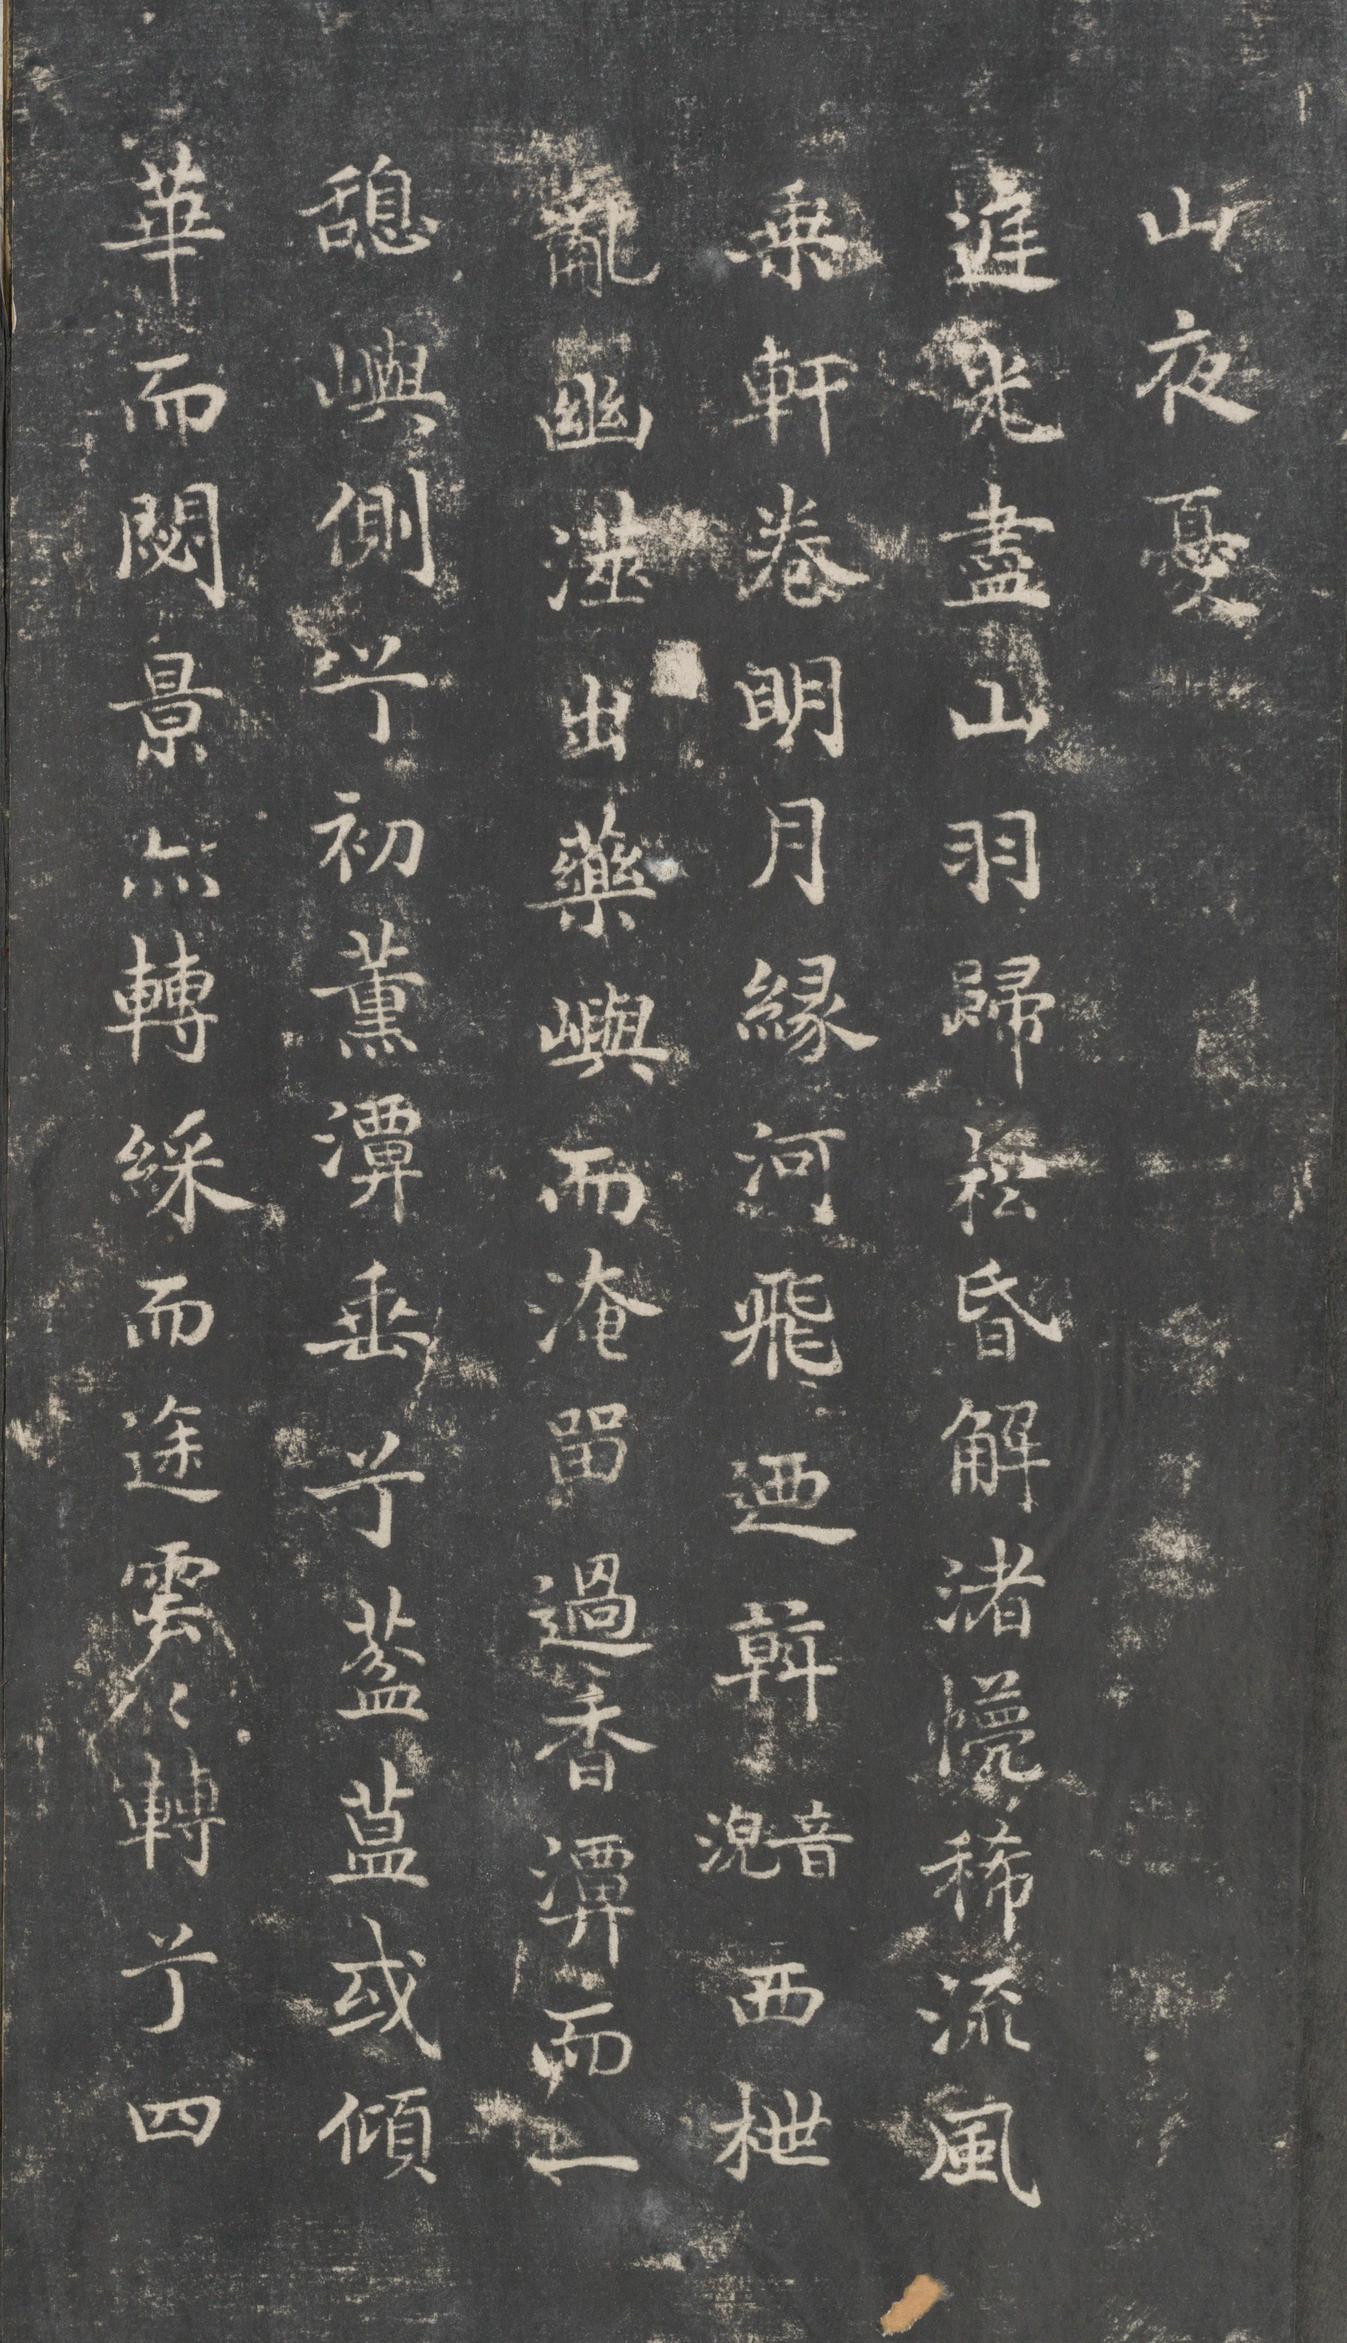 山夜憂
遲光盡山羽歸松昏解渚幔稀流風
乗軒卷明月緣河飛迺斡音浼西枻
亂幽澨出藥嶼而淹留過香潭而一
憩嶼側兮初薰潭垂兮葢蒀或傾
華而閟景亦轉綵而途雲雲轉兮四